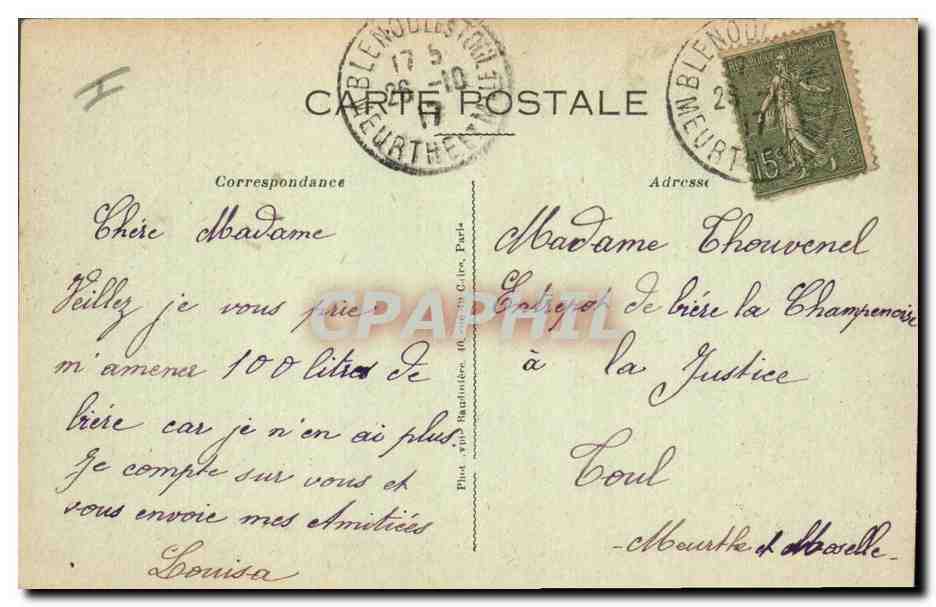 CARTE POSTALE
BLENOD LES TOUL
17 5
26 -10
17
MEURTHE ET M
BLENOD
MEURT
RÉPUBLIQUE FRANÇAISE
15
Correspondance
Chére Madame
Veillez je vous prie
m'amener 100 litres de
biére car je n'en ai plus.
Je compte sur vous et
vous envoie mes Amitiées
Louisa
Phot. Baudinière, 40, rue du Caire, Paris
Adresse
Madame Thouvenel
Entrepot de bière la Champenoise
à la Justice
Toul
- Meurthe et Moselle -
CPAPHIL